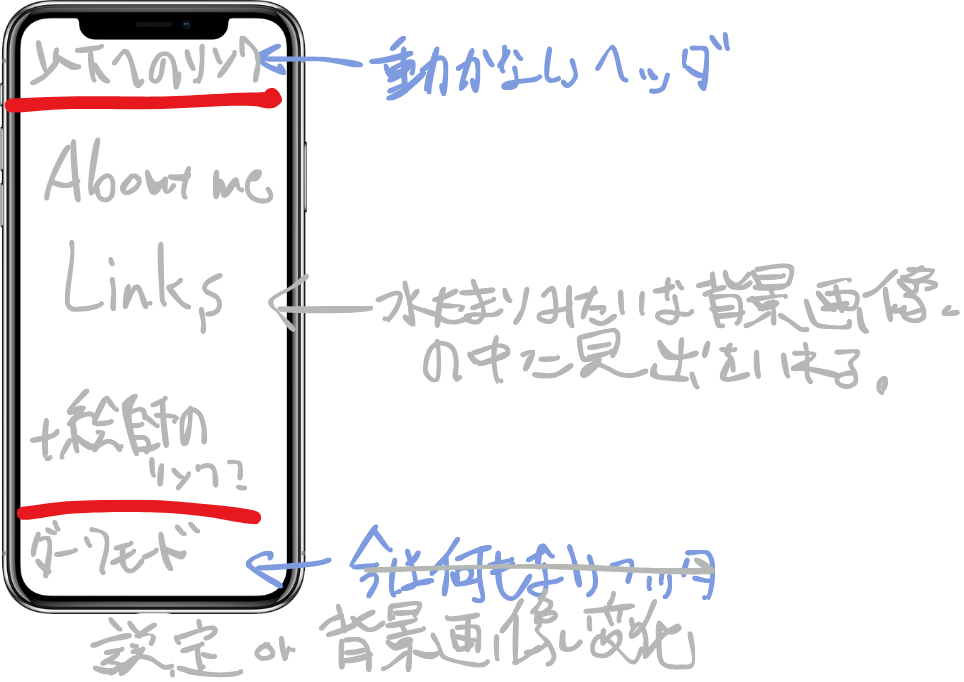 以下へのリンク
動かないヘッダ
About me
Links
水たまりみたいな背景画像。
の中に見出をいれる。
+絵師の
リンク?
ダークモード
今は何もないフッタ
設定 or 背景画像変化